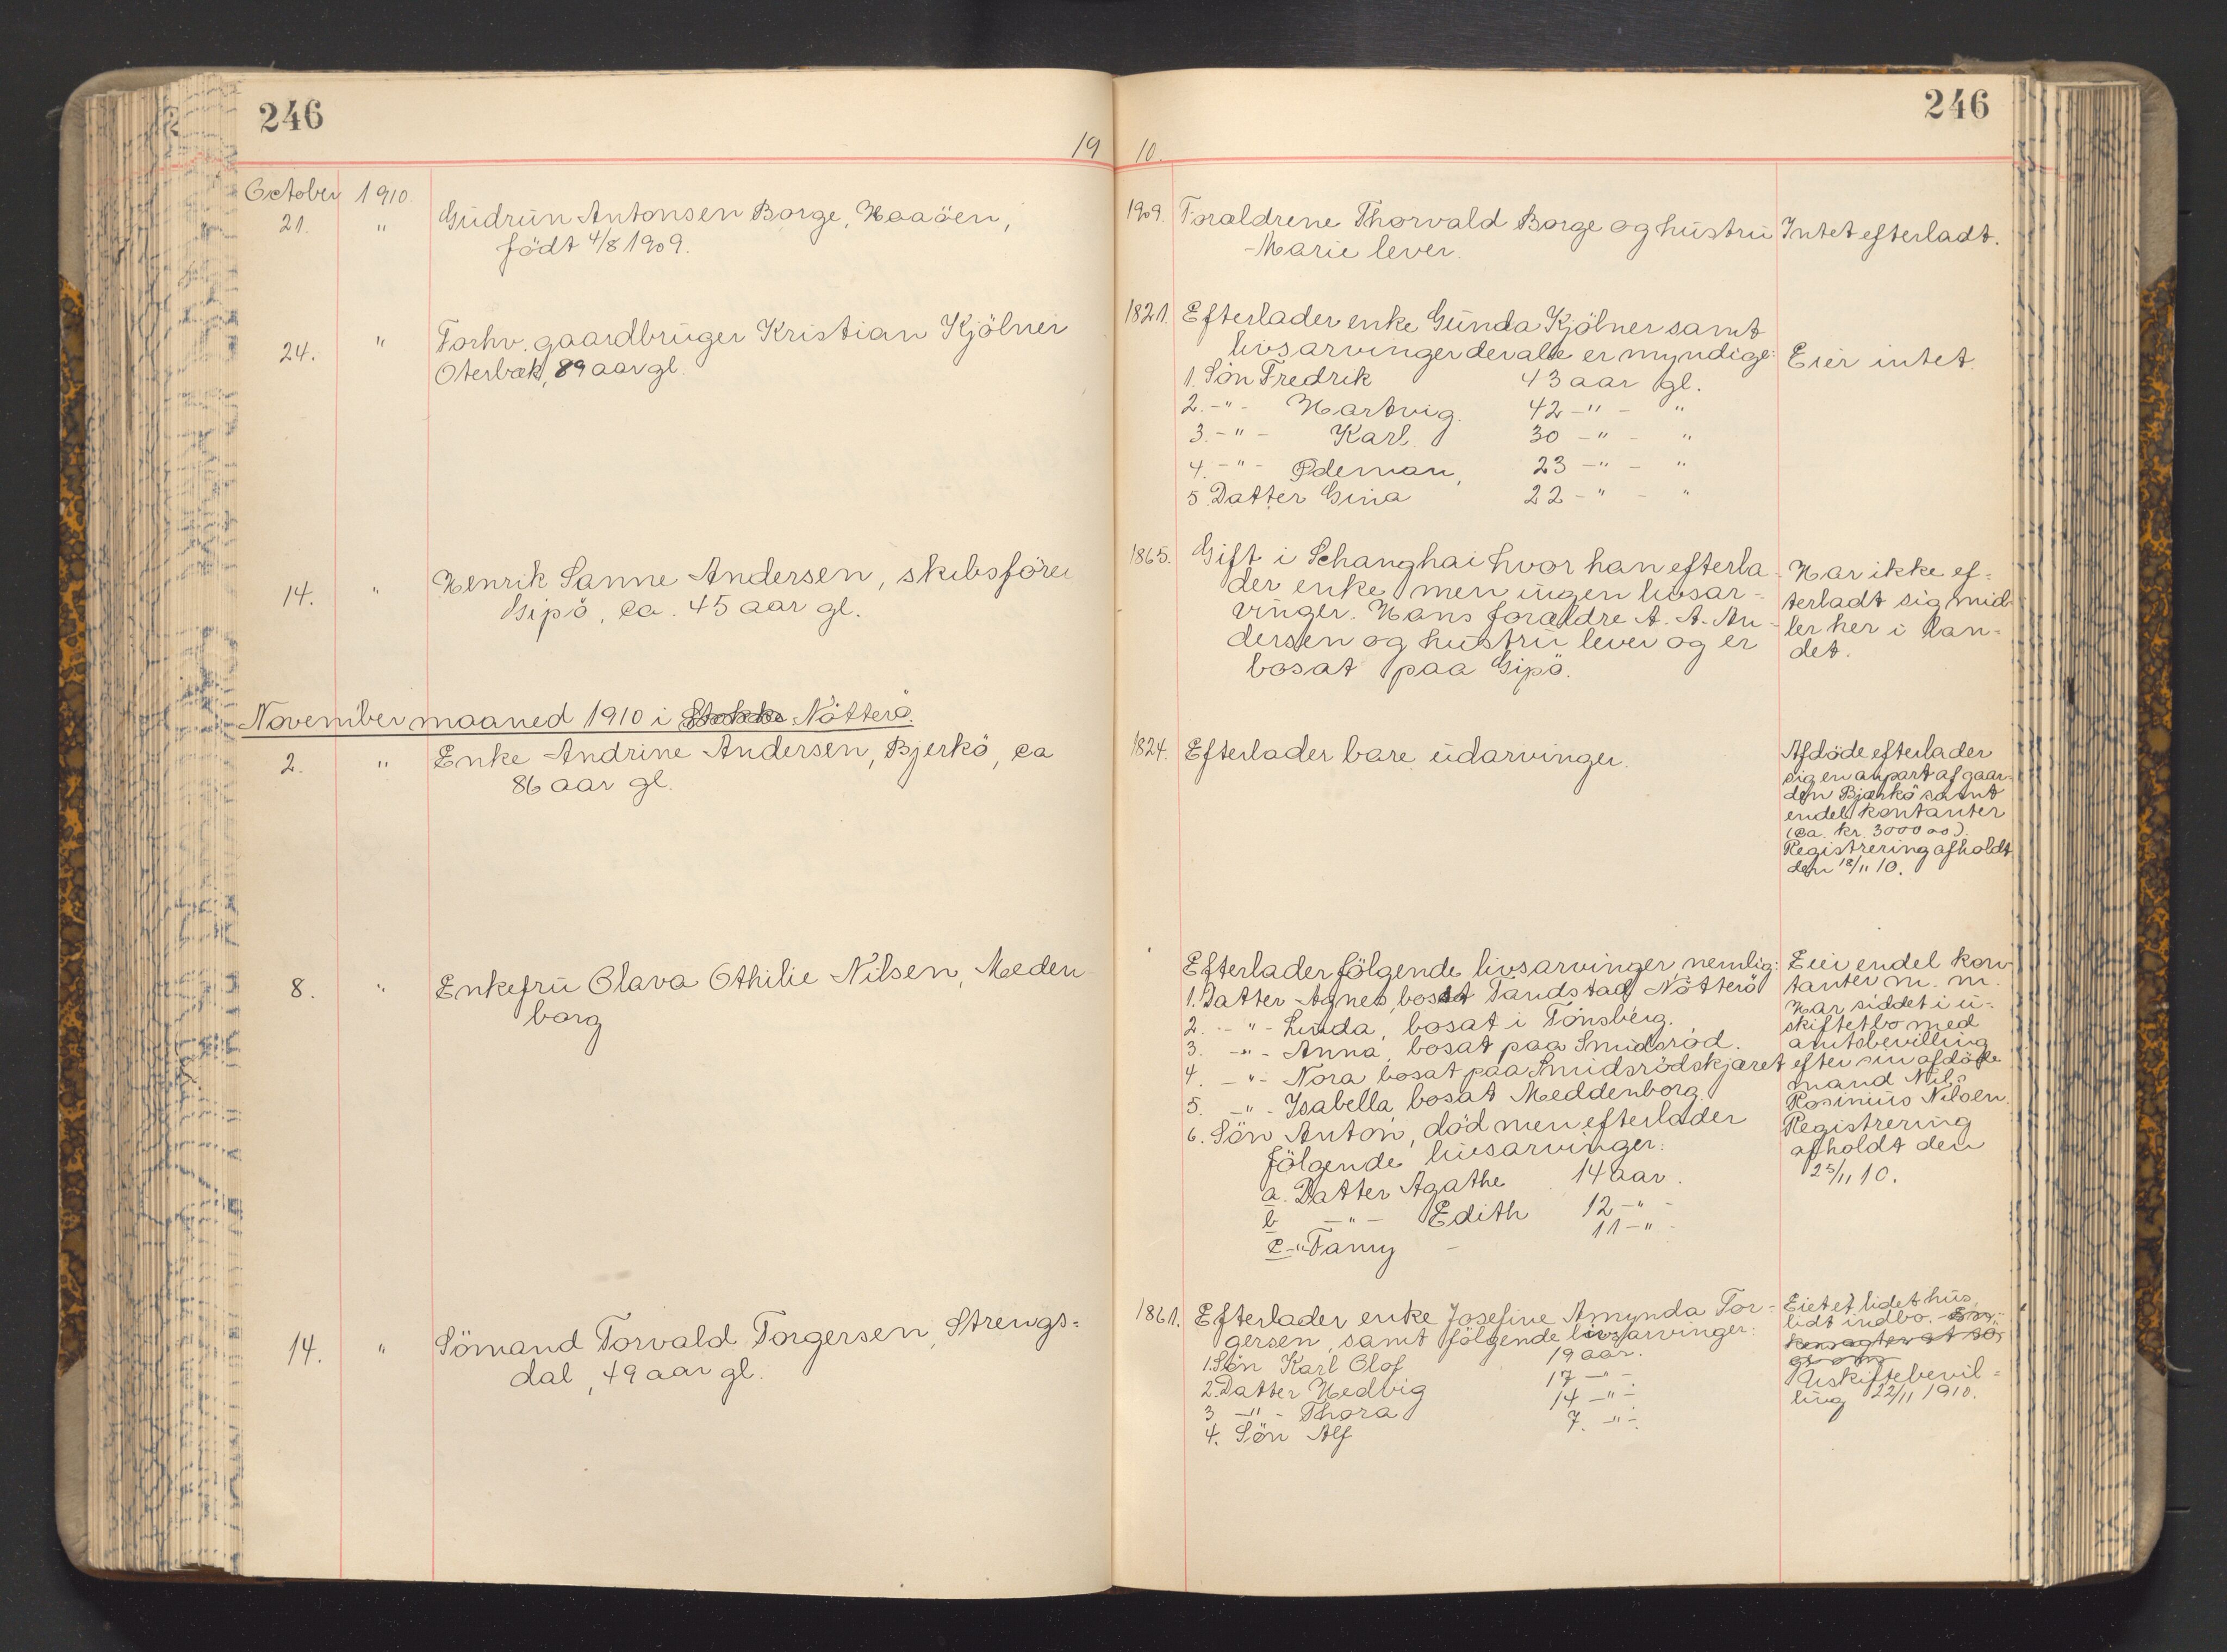 246
246
19 10.
October 1910.
21. " Gudrun Antonsen Borge, Haaöen,
födt 4/8 1909.
1909. Forældrene Thorvald Borge og hustru
Marie lever.
Intet efterladt.
24. " Forhv. gaardbruger Kristian Kjölner
Oterbæk, 89 aar gl.
1821. Efterlader enke Gunda Kjölner samt
livsarvinger der alle er myndige:
1. Sön Fredrik 43 aar gl.
2. -"- Hartvig. 42 -"- "
3. -"- Karl. 30 -"- "
4. -"- Edeman, 23 -"- "
5. Datter Gina 22 -"- "
Eier intet.
14. " Henrik Sanne Andersen, skibsförer
Gipö, ca. 45 aar gl.
1865. Gift i Schanghai hvor han efterla-
der enke men ingen livsar-
vinger. Hans forældre A. A. An-
dersen og hustru lever og er
bosat paa Gipö.
Har ikke ef-
terladt sig mid-
ler her i lan-
det.
November maaned 1910 i Stokke Nötterö.
2. " Enke Andrine Andersen, Bjerkö, ca
86 aar gl.
1824. Efterlader bare udarvinger.
Afdöde efterlader
sig en anpart af gaar-
den Bjærkö samt
endel kontanter
(ca. kr. 3000 00).
Registrering afholdt
den 18/11 10.
8. " Enkefru Olava Othilie Nilsen, Meden-
borg
Efterlader fölgende livsarvinger, nemlig:
1. Datter Agnes, bosat Tandstad Nötterö
2. -"- Linda, bosat i Tönsberg.
3. -"- Anna, bosat paa Smidsröd.
4. -"- Nora, bosat paa Smidsrödskjæret
5. -"- Isabella, bosat Meddenborg.
6. Sön Anton, död men efterlader
fölgende livsarvinger:
a. Datter Agathe 14 aar.
b -"- Edith 12 -"-
c -"- Fanny - 11 -"-
Eier endel kon-
tanter m. m.
Har siddet i u-
skiftet bo med
amtsbevilling
efter sin afdöde
mand Nils
Rosinius Nilsen.
Registrering
afholdt den
25/11 10.
14. " Sömand Torvald Torgersen, Strengs-
dal, 49 aar gl.
1861. Efterlader enke Josefine Amynda Tor-
gersen, samt fölgende livsarvinger:
1. Sön Karl Olaf 19 aar.
2. Datter Hedvig 17 -"-
3 -"- Thora 14 -"-
4. Sön Alf 7. -"-
Eiet et lidet hus,
lidt indbo.
Uskiftebevil-
ling 22/11 1910.